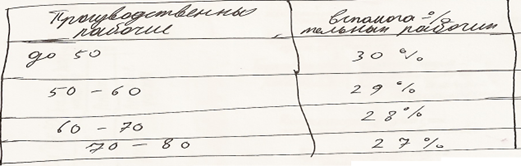 Производственные рабочие
вспомога-%
тельных рабочих
до 50 30 %
50 - 60 29 %
60 - 70 28 %
70 - 80 27 %